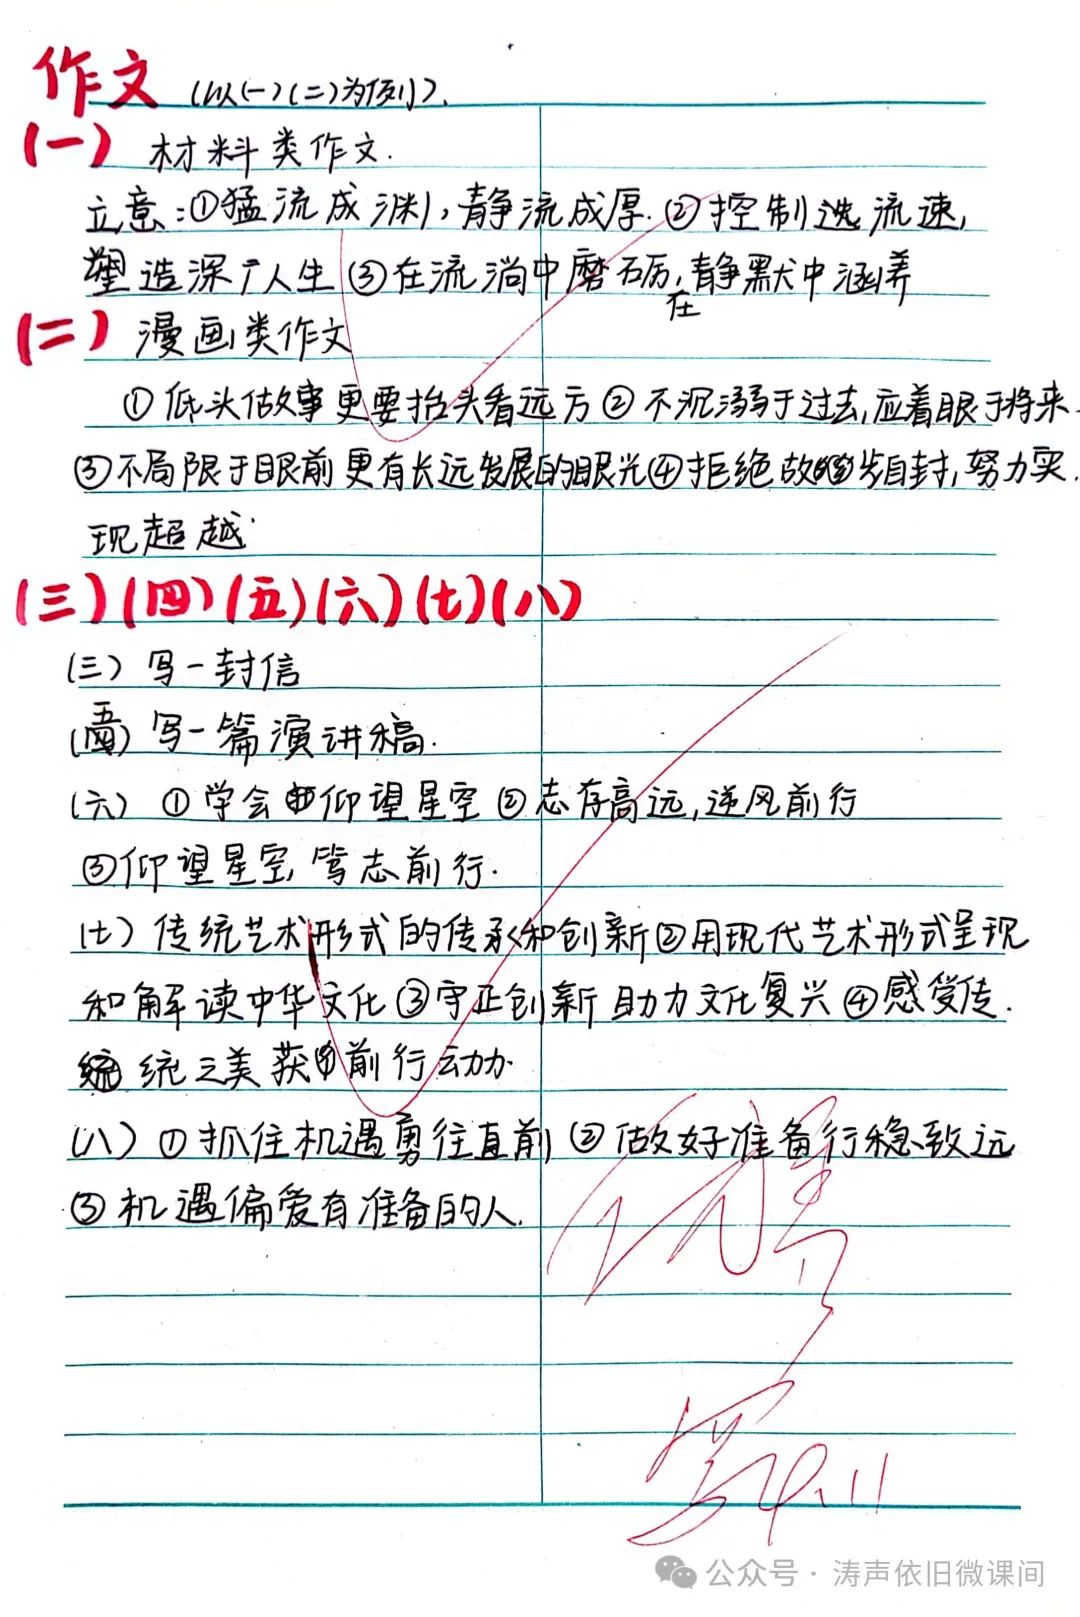 作文 (以(一)(二)为例).
(一) 材料类作文.
立意:①猛流成渊,静流成厚.②控制选流速,
塑造深广人生③在流淌中磨砺,在静默中涵养
(二) 漫画类作文
①低头做事更要抬头看远方②不沉溺于过去,应着眼于将来
③不局限于眼前更有长远发展的眼光④拒绝故步自封,努力实
现超越.
(三)(四)(五)(六)(七)(八)
(三) 写一封信
(五) 写一篇演讲稿.
(六) ①学会仰望星空②志存高远,逆风前行
③仰望星空,笃志前行.
(七) 传统艺术形式的传承和创新②用现代艺术形式呈现
和解读中华文化③守正创新 助力文化复兴④感受传.
统之美获前行动力.
(八) ①抓住机遇勇往直前②做好准备行稳致远
③机遇偏爱有准备的人.
优
公众号·涛声依旧微课间